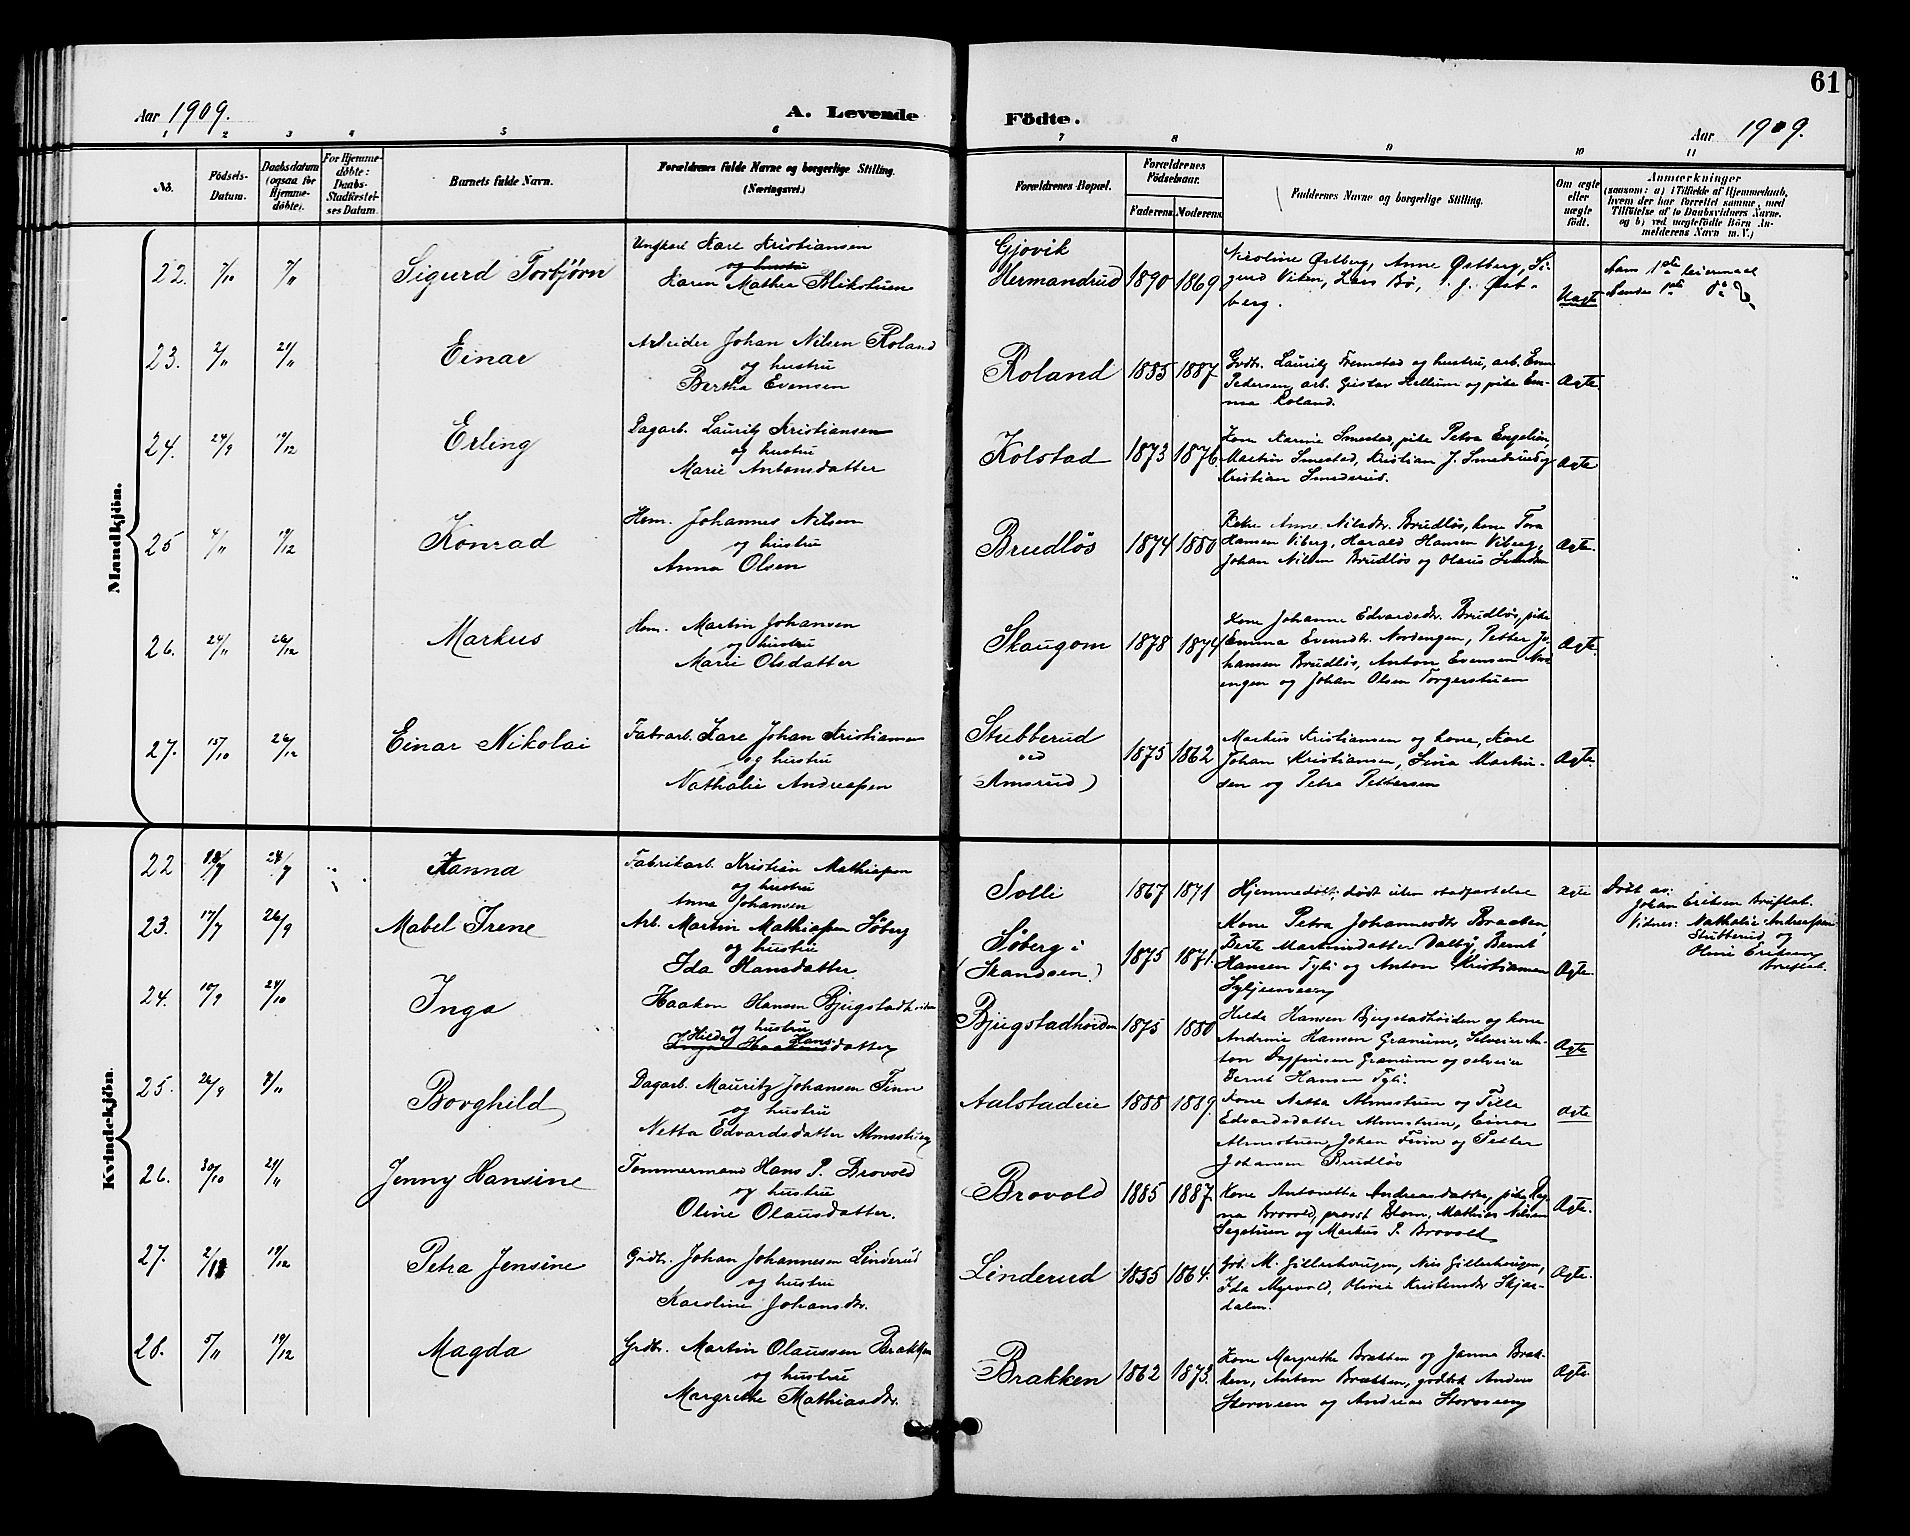 61
Aar 1909. A. Levende Födte. Aar 1909.
1 2 3 4 5 6 7 8 9 10 11
No. Födsels-Datum. Daabsdatum (ogsaa for Hjemme-döbte). For Hjemme-döbte: Daabs-Stadfæstelses Datum. Barnets fulde Navn. Forældrenes fulde Navne og borgerlige Stilling. (Næringsvei.) Forældrenes Bopæl. Forældrenes Födselsaar. Faderens. Moderens. Faddernes Navne og borgerlige Stilling. Om ægte eller uægte födt. Anmærkninger (saasom: a) i Tilfælde af Hjemmedaab, hvem der har forrettet samme, med Tilföielse af to Daabsvidners Navne, og b) ved uægtefödte Börn Anmelderens Navn m. V.)
Mandkjön.
22. 7/10 7/11 Sigurd Torbjørn
Ungkarl Karl Kristiansen
og hustru
Karen Mathea Mikelsen
Gjøvik
Hermandrud 1890 1869
Nicoline Østberg, Anne Østberg, Si-
gurd Viken, Lars Bø, J. Øst-
berg.
Uægte
23. 2/11 21/11 Einar
Arbeider Johan Nilsen Roland
og hustru
Bertha Evensen
Roland 1885 1887
Grdbr. Lauritz Fremstad og hustru, arb. Even
Pedersen, arb. Gustav Hellum og pike Em-
ma Roland.
Ægte
24. 24/9 19/12 Erling
Dagarb. Lauritz Kristiansen
og hustru
Marie Antonsdatter
Kolstad 1873 1876
Kone Karine Smestad, pike Petra Engelien,
Martin Smestad, Kristian J. Smederud og
Kristian Smederud.
Ægte
25 4/11 19/12 Konrad
Hem. Johannes Nilsen
og hustru
Anna Olsen
Brudløs 1874 1880
Pike Anne Nilsdtr. Brudløs, kone Tora
Hansen Viberg, Harald Hansen Viberg,
Johan Nilsen Brudløs og Olaus
Ægte.
26. 24/11 26/12 Markus
Hem. Martin Johansen
og hustru
Marie Olsdatter
Skaugom 1878 1874
Kone Johanne Edvardsdtr. Brudløs, pike
Emma Evensdtr. Nordengen, Petter Jo-
hansen Brudløs, Anton Evensen Nord
engen og Johan Olsen Torgerstuen
Ægte.
27. 15/10 26/12 Einar Nikolai
Fabrarb. Karl Johan Kristiansen
og hustru
Nathalie Andreassen
Stubberud
ved
(Amsrud) 1875 1862
Markus Kristiansen og kone, Karl
Johan Kristiansen, Lina Martin-
sen og Petra Pettersen
Ægte.
Kvindekjön.
22 24/7 Hanna
Fabrikarb. Kristian Mathiassen
og hustru
Anna Johansen
Solli 1867 1871
Hjemmedøbt, dødt uten stadfæstelse
Ægte
Døbt av:
Johan Eriksen Bruflat.
Vidner: Nathalie Andreassen
Stubberud og
Oline Eriksen
Bruflat.
23. 17/7 26/9 Mabel Irene
Arb. Martin Mathiassen Søberg
og hustru
Ida Hansdatter
Søberg i
(Skandsen.) 1875 1871.
Kone Petra Johannesdtr Braaten,
Berte Martinsdatter Dalby, Bernt
Hansen Tyli og Anton Kristiansen
Ægte
24. 10/9 24/10 Inga
Haaken Hansen Bjugstadhøiden
og hustru
Hilda Hans
Inga Haakensdatter
Bjugstadhøiden 1875 1880
Hilda Hansen Bjugstadhøiden og kone
Andrine Hansen Granum, Selveier An-
ton Granum og selveier
Bernt Hansen Tyli.
Ægte
25. 26/9 7/11 Borghild
Dagarb. Mauritz Johansen Finn
og hustru
Netta Edvardsdatter Almestuen
Aalstadeie 1888 1889.
Kone Netta Almestuen og Tilla
Edvardsdatter Almestuen, Einar
Almestuen, Johan Finn og Petter
Johansen Brudløs
Ægte
26. 30/10 21/11 Jenny Hansine
Tømmermand Hans P. Brovold
og hustru
Oline Olausdatter.
Brovold 1885 1887.
Kone Antonette Andreasdatter, pike Rag
na Brovold, provst Blom, Mathias Nilsen
Segelstuen og Markus P. Brovold
Ægte.
27. 19/12 Petra Jensine
Grdbr. Johan Johannesen Linderud
og hustru
Karoline Johansdtr.
Linderud 1855 1864.
Grb. M. Gillerhaugen, Nils Gillerhaugen,
Ida Myrvold, Olivia Kristensdtr Skjær-
dalen.
Ægte.
28. 5/11 19/12 Magda
Grdbr. Martin Olaussen Brakken
og hustru
Margrethe Mathiasdtr.
Brakken 1862 1873.
Kone Margrethe Brakken og Janna Brak-
ken, Anton Brakken, Anders
Storsveen og Andreas Storsveen
Ægte.